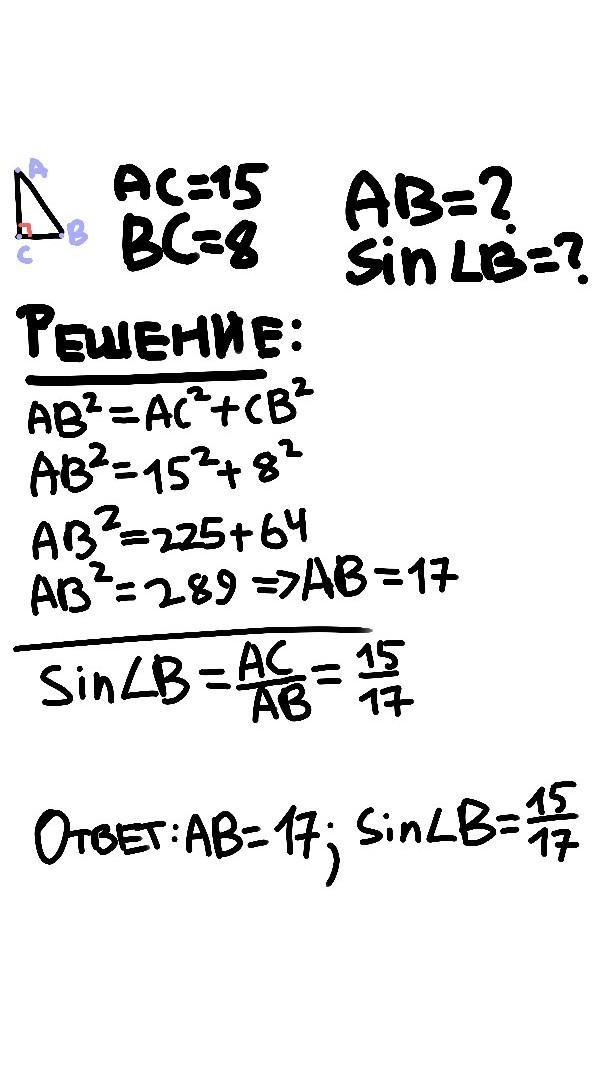 A
B
C
AC=15
BC=8
AB=?
sin∠B=?
РЕШЕНИЕ:
AB²=AC²+CB²
AB²=15²+8²
AB²=225+64
AB²=289 =>AB=17
Sin∠B=AC/AB=15/17
ОТВЕТ:AB=17; sin∠B=15/17